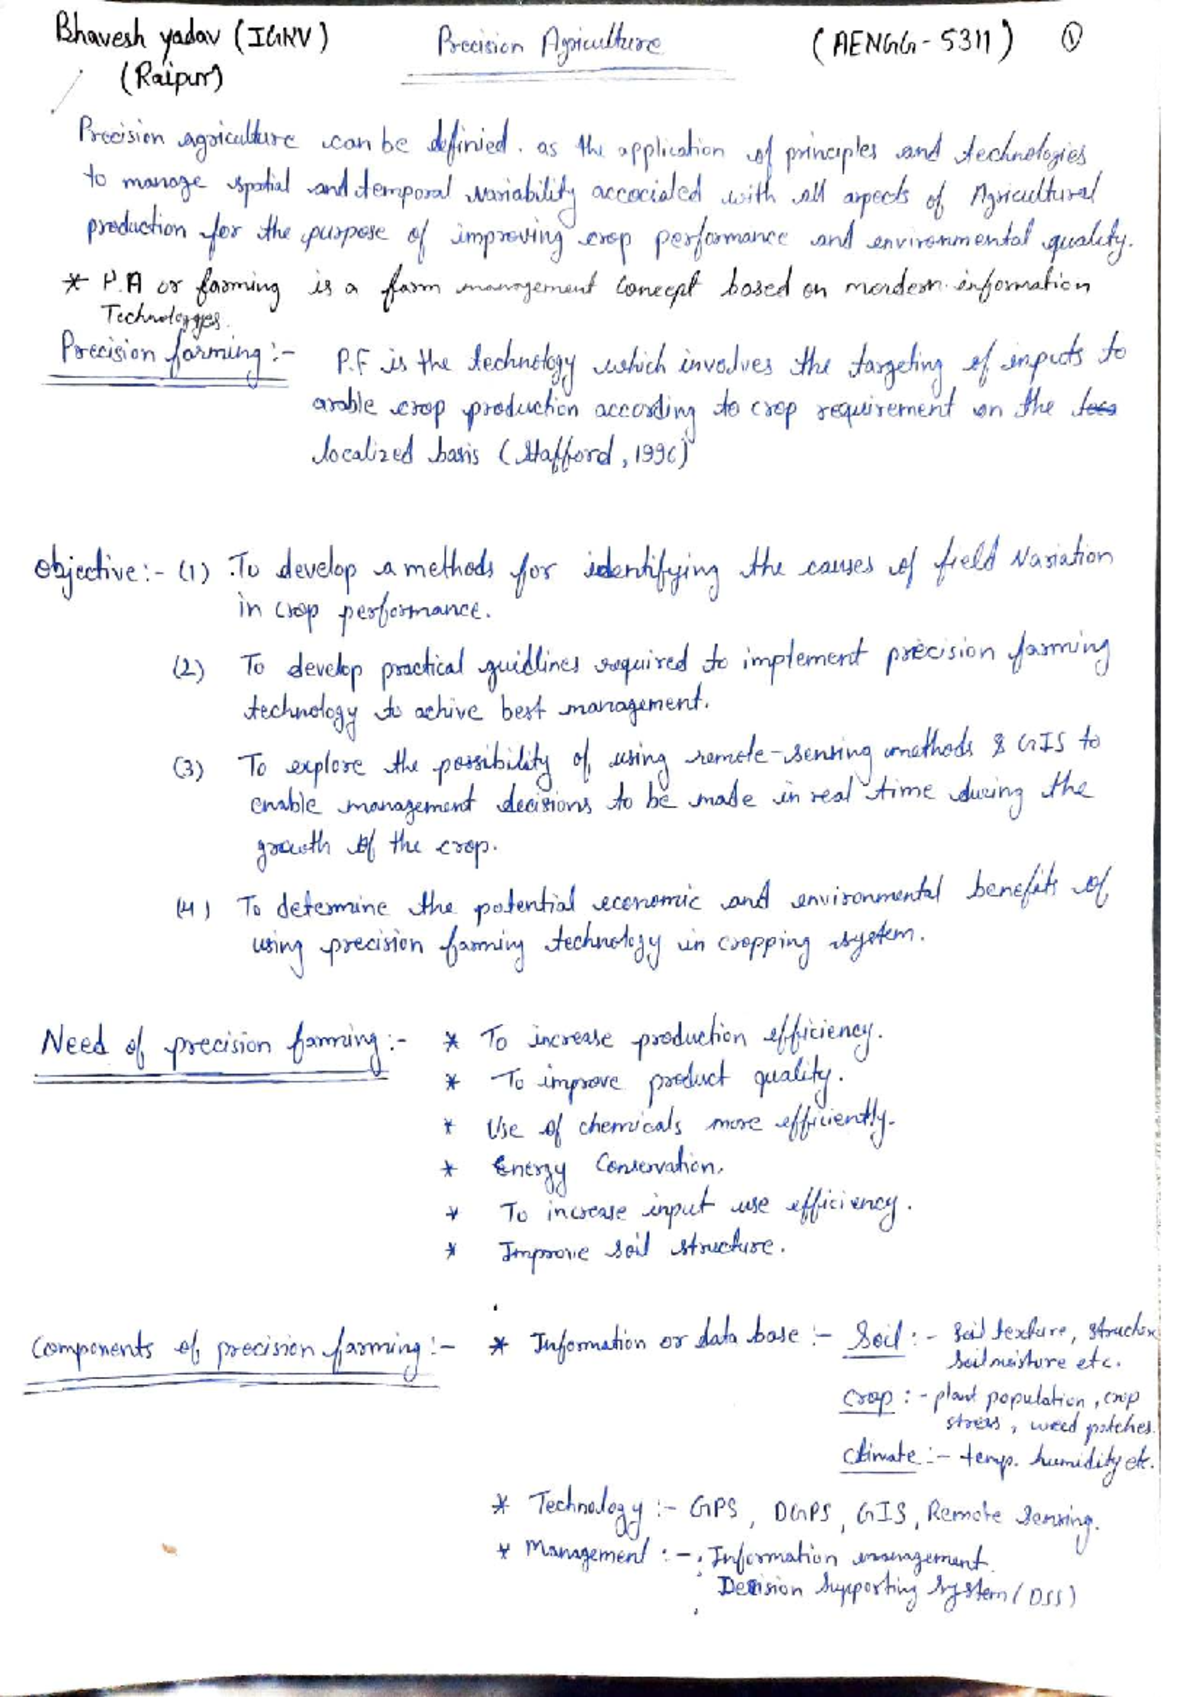 Bhavesh yadav (IGKV) Precision Agriculture (AENGG-5311) 1
(Raipur)
Precision agriculture can be definied. as the application of principles and technologies
to manage spatial and temporal variability accociated with all aspects of Agricultural
production for the purpose of improving crop performance and environmental quality.
* P.A or farming is a farm management concept based on mordern information
Technologges.
Precision farming :- P.F is the technology which involves the targeting of inputs to
arable crop production according to crop requirement on the
localized basis (Stafford, 1996)
Objective :- (1) To develop a methods for identifying the causes of field variation
in crop performance.
(2) To develop practical guidlines required to implement precision farming
technology to achive best management.
(3) To explore the possibility of using remote-sensing methods & GIS to
enable management decisions to be made in real time during the
growth of the crop.
(4) To determine the potential economic and environmental benefits of
using precision farming technology in cropping system.
Need of precision farming :- * To increase production efficiency.
* To improve product quality.
* Use of chemicals more efficiently.
* Energy Conservation.
* To increase input use efficiency.
* Improve soil structure.
Components of precision farming :- * Information or data base :- Soil :- Soil texture, structure
Soil moisture etc.
Crop :- plant population, crop
stress, weed patches.
Climate :- temp. humidity etc.
* Technology :- GPS, DGPS, GIS, Remote Sensing.
* Management :- Information management
Decision Supporting System (DSS)